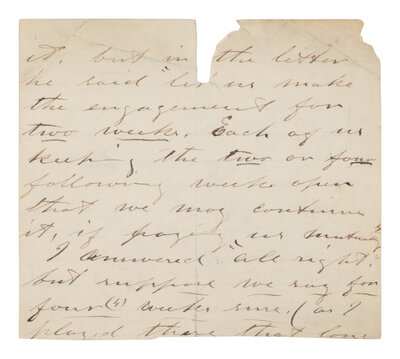 it, but in the letter
he said "let us make
the engagement for
two weeks. Each of us
keeping the two or four
following weeks open
that we may continue
it, if paying us mutually"
I answered "all right,
but suppose we say for
four (4) weeks sure. (as I
played there that long